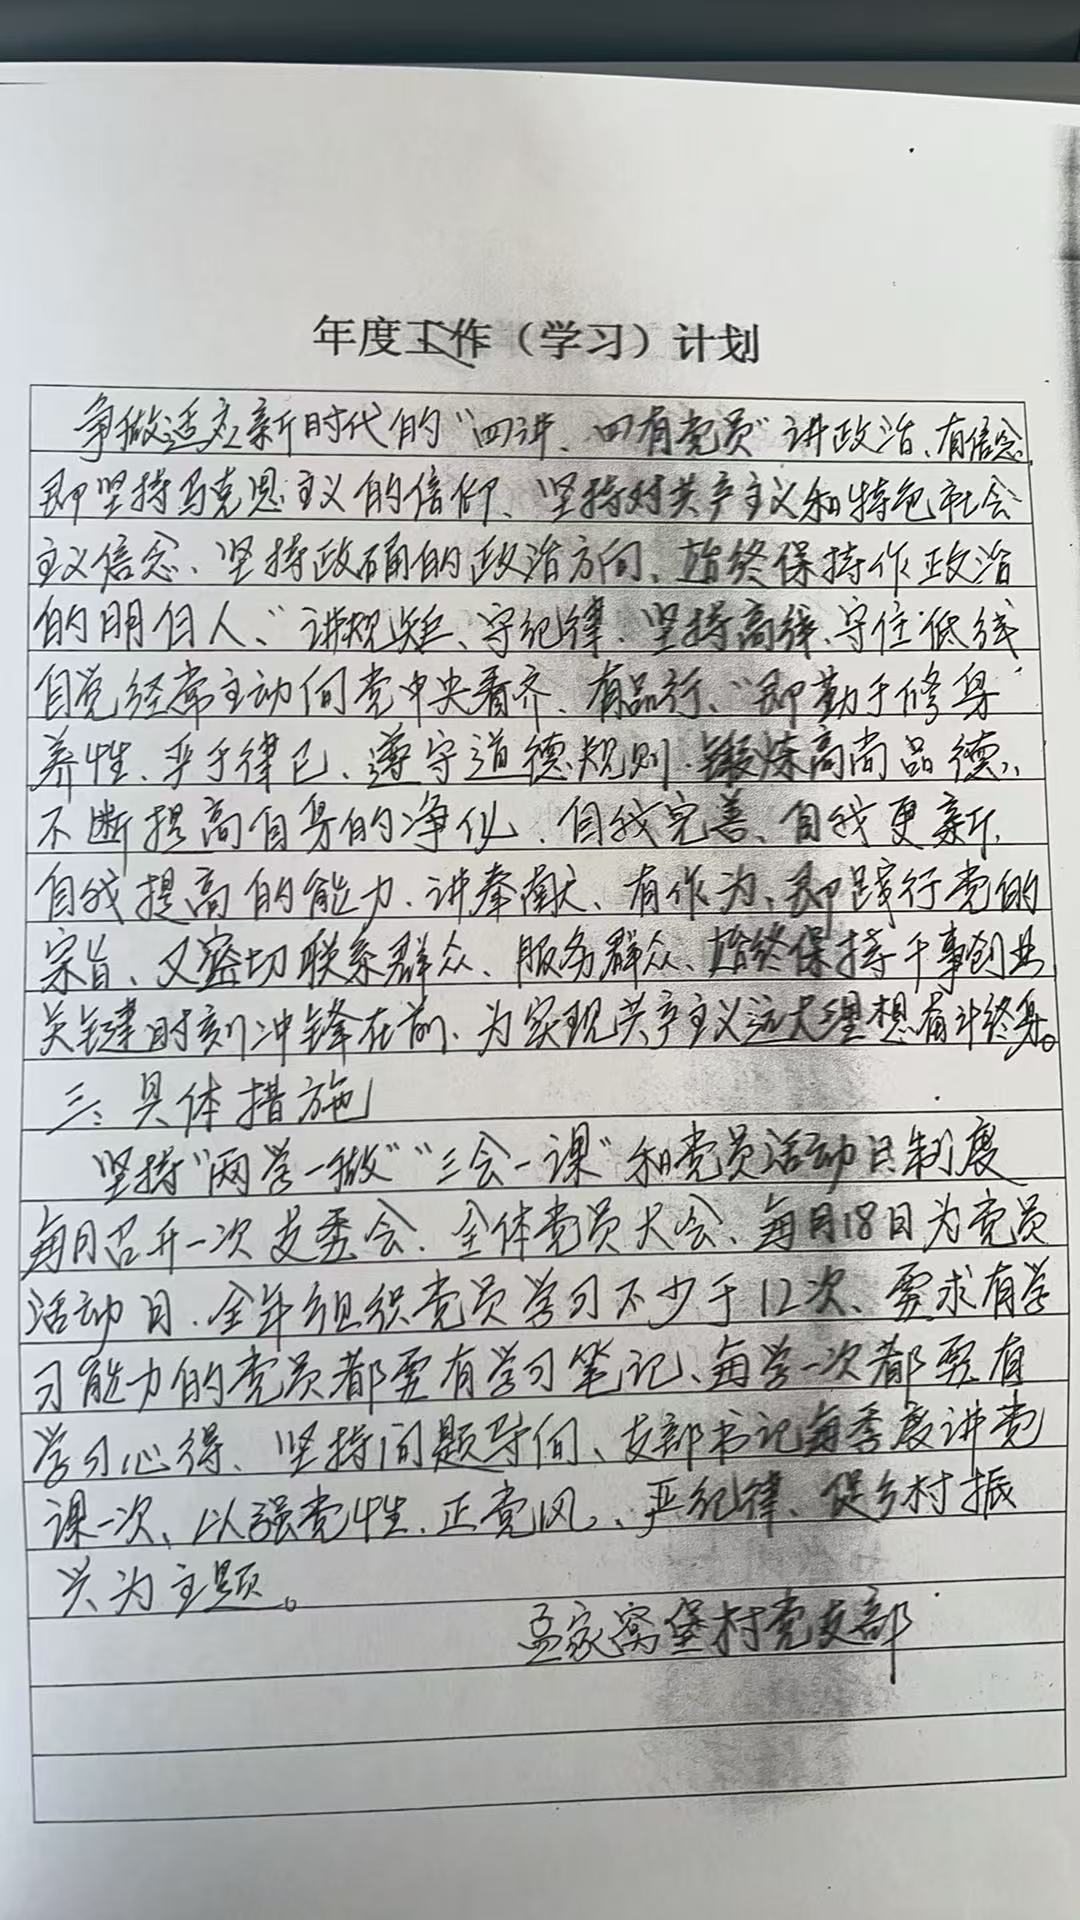 年度工作（学习）计划
争做适应新时代的“四讲、四有党员”讲政治、有信念
即坚持马克思主义的信仰、坚持对共产主义和特色社会
主义信念、坚持政确的政治方向、始终保持作政治
的明白人、“讲规矩、守纪律、坚持高线、守住低线
自觉经常主动向党中央看齐、有品行、“即勤于修身
养性、严于律己、遵守道德规则、锻炼高尚品德、
不断提高自身的净化、自我完善、自我更新、
自我提高的能力、讲奉献、有作为、即践行党的
宗旨、又密切联系群众、服务群众、始终保持干事创业
关键时刻冲锋在前、为实现共产主义远大理想奋斗终身。
三、具体措施
坚持“两学一做”“三会一课”和党员活动日制度
每月召开一次支委会、全体党员大会、每月18日为党员
活动日、全年组织党员学习不少于12次、要求有学
习能力的党员都要有学习笔记、每学一次都要有
学习心得、坚持问题导向、支部书记每季度讲党
课一次、以强党性、正党风、严纪律、促乡村振
兴为主题。
孟家窝堡村党支部